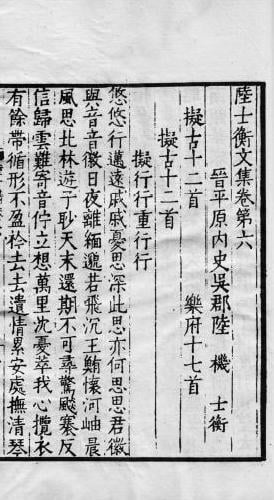 陸士衡文集卷第六
晉平原內史吳郡陸 機 士衡
擬古十二首 樂府十七首
擬古十二首
擬行行重行行
悠悠行邁遠戚戚憂思深此思亦何思思君徽
與音音徽日夜離緬邈若飛沉王鮪懷河岫晨
風思北林遊子眇天末還期不可尋驚飈褰反
信歸雲難寄音佇立想萬里沈憂萃我心攬衣
有餘帶循形不盈衿去去遺情累安處撫清琴